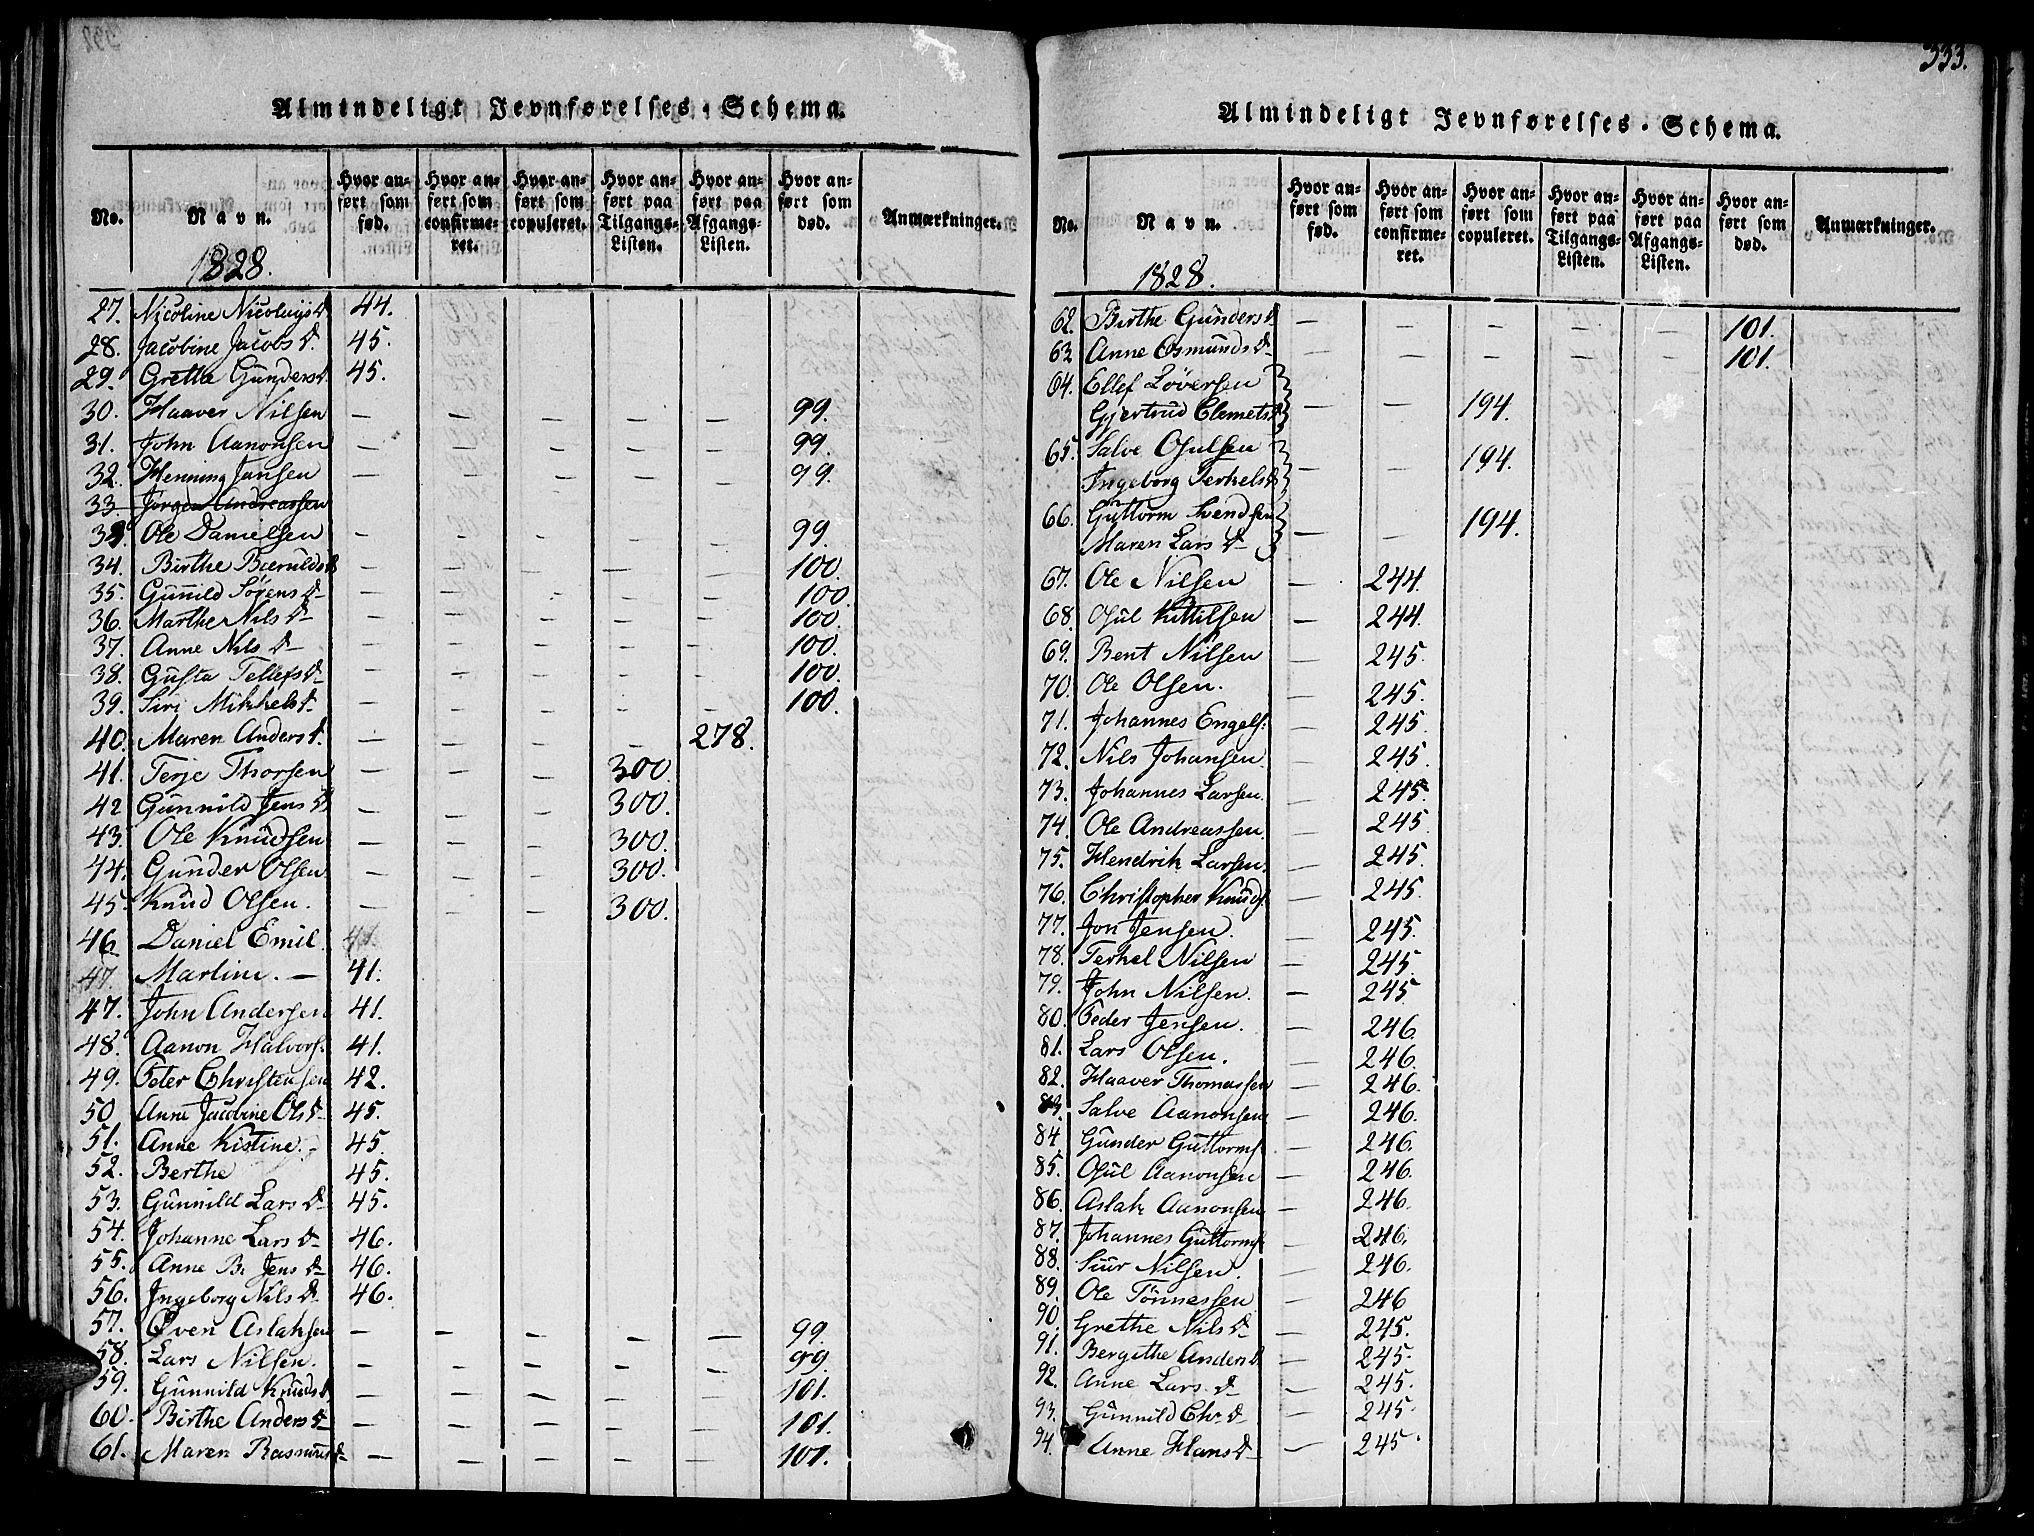 Almindeligt Jevnførelses-Schema.
No. Navn. Hvor anført som fød. Hvor anført som confirmeret. Hvor anført som copuleret. Hvor anført paa Tilgangs-Listen. Hvor anført paa Afgangs-Listen. Hvor anført som død. Anmærkninger.
1828.
27. Nicoline Nicolaysd 44.
28. Jacobine Jacobsd. 45.
29. Grethe Gundersd. 45.
30. Haaver Nilsen — — — — — 99.
31. John Aanonsen — — — — — 99.
32. Henning Jansen — — — — — 99.
33. Jørgen Andreassen
33. Ole Danielsen — — — — — 99.
34. Birthe Baruldsd — — — — — 100.
35. Gunild Sørensd — — — — — 100.
36. Marthe Nilsd — — — — — 100.
37. Anne Nilsd — — — — — 100.
38. Gusta Tellefsd — — — — — 100.
39. Siri Mikkelsd — — — — — 100.
40. Maren Andersd. — — — — 278.
41. Terje Thorsen — — — 300.
42 Gunnild Jensd — — — 300.
43. Ole Knudsen — — — 300.
44. Gunder Olsen — — — 300.
45. Knud Olsen. — — — 300.
46. Daniel Emil 41.
47. Martine. — 41.
47. John Andersen 41.
48. Aanon Halvors: 41.
49. Peter Christensen 42.
50. Anne Jacobine Olsd 45.
51. Anne Kistine. — 45.
52. Berthe 45.
53. Gunnild Larsd 45.
54. Johanne Larsd 46.
55. Anne B. Jensd 46.
56. Ingeborg Nilsd 46.
57. Oven Aslaksen — — — — — 99.
58. Lars Nilsen. — — — — — 99.
59. Gunnild Knudsd — — — — — 101.
60. Birthe Andersd — — — — — 101.
61. Maren Rasmusd — — — — — 101.
333.
Almindeligt Jevnførelses-Schema.
No. Navn. Hvor anført som fød. Hvor anført som confirmeret. Hvor anført som copuleret. Hvor anført paa Tilgangs-Listen. Hvor anført paa Afgangs-Listen. Hvor anført som død. Anmærkninger.
1828.
62. Birthe Gundersd — — — — — 101.
63 Anne Osmundsd — — — — — 101.
64. Ellef Løversen
Gjertrud Clemetsd — — 194.
65. Salve Osulsen
Ingeborg Terkelsd — — 194.
66. Guttorm Svendsen
Maren Larsd — — 194.
67. Ole Nilsen — 244.
68. Osul Kittilsen — 244.
69. Bent Nilsen — 245.
70. Ole Olsen. — 245.
71. Johannes Engels: — 245.
72. Nils Johansen — 245.
73. Johannes Larsen. — 245.
74. Ole Andreassen. — 245.
75. Hendrik Larsen. — 245.
76. Christopher Knuds: — 245.
77. Jon Jensen. — 245.
78. Terkel Nilsen — 245.
79. John Nilsen. — 245.
80. Peder Jensen. — 246.
81. Lars Olsen. — 246.
82. Haaver Thomassen — 246.
83. Salve Aanonsen — 246.
84 Gunder Guttorms: — 246.
85. Osul Aanonsen — 246.
86. Aslak Aanonsen — 246.
87. Johannes Guttorms: — 246.
88. Siur Nilsen. — 246.
89. Ole Tønnessen — 246
90. Grethe Nilsd — 245.
91. Bergithe Andersd — 245.
92. Anne Larsd — 245.
93. Gunnild Chr.d — 245.
94. Anne Hansd — 245.